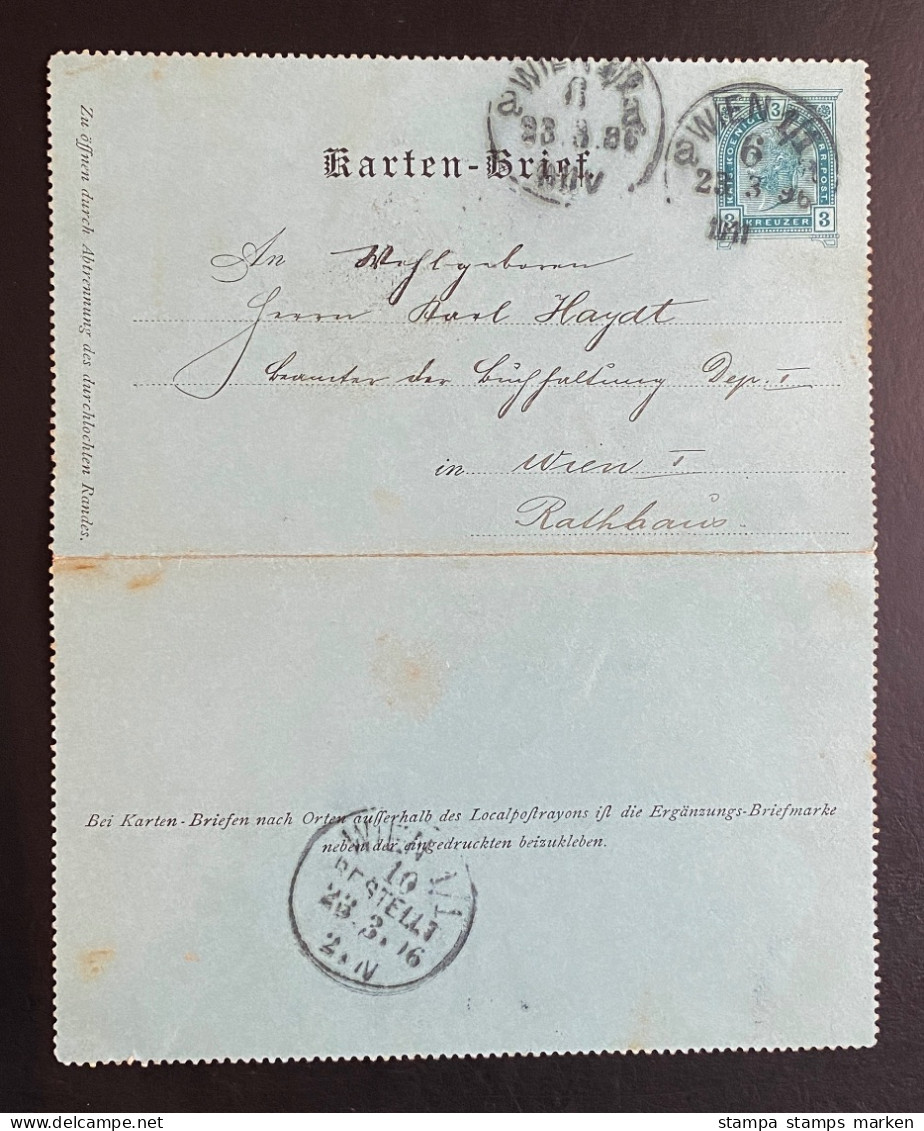 Karten-Brief.
Zu öffnen durch Abtrennung des durchlochten Randes.
a WIEN
6
23.3.96
a WIEN
6
23 3 96
3
KAIS. KOENIGL.
OESTERR. POST.
3 KREUZER 3
An Wohlgeboren
Herrn Karl Haydt
Beamter der Buchhaltung Dep. I
in Wien I
Rathhaus
Bei Karten-Briefen nach Orten auſſerhalb des Localpoſtrayons iſt die Ergänzungs-Briefmarke
neben der eingedruckten beizukleben.
WIEN 1/1
10
BESTELLT
23.3.96
2.N
stampa stamps marken